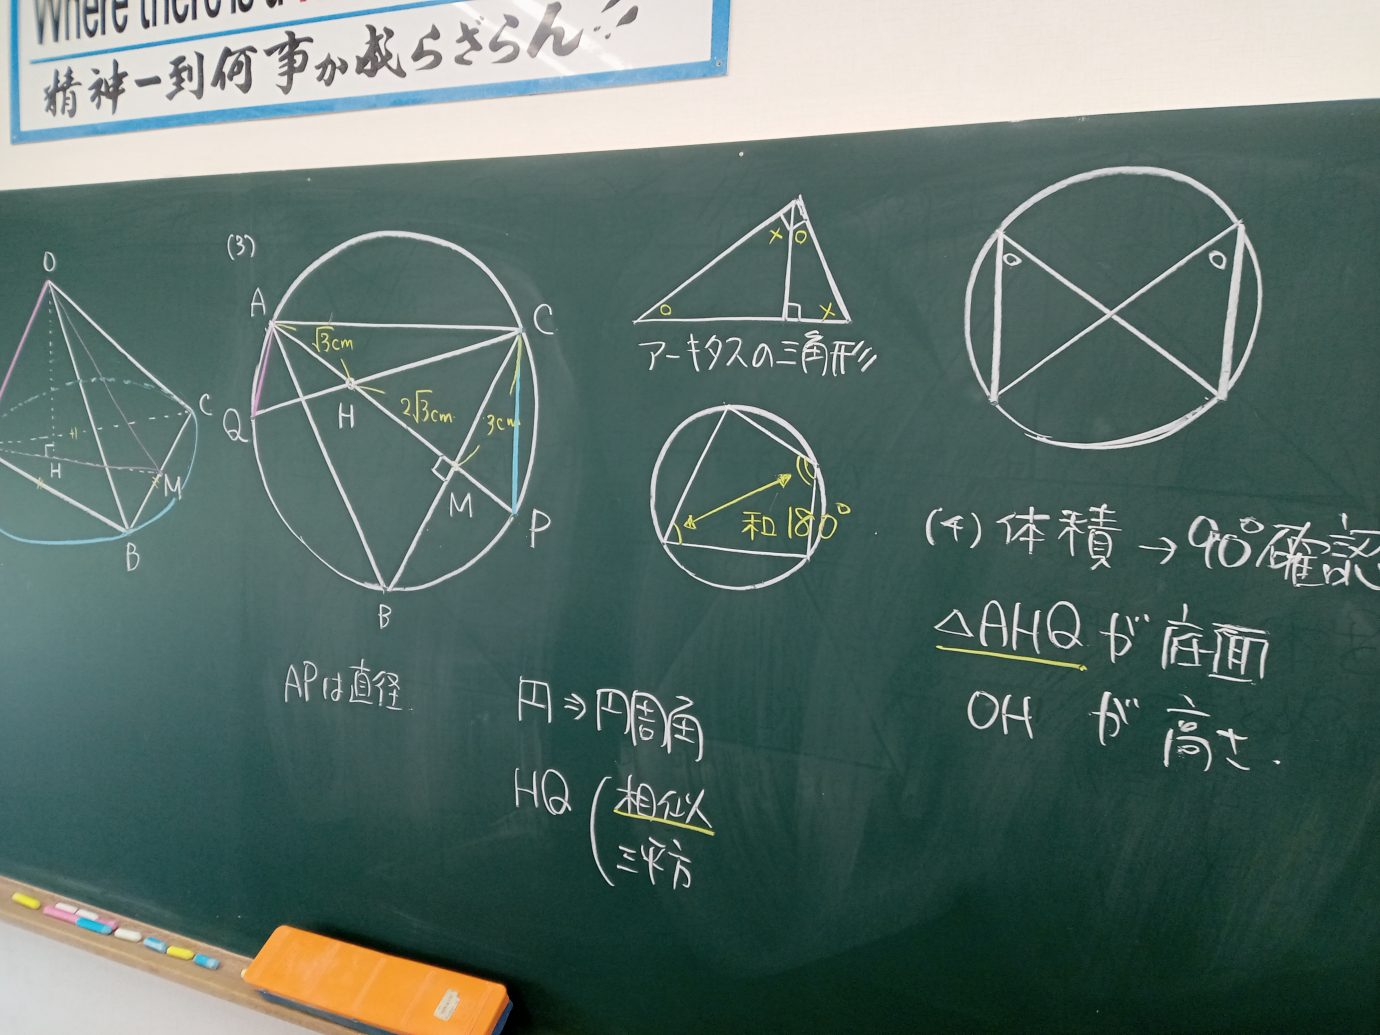 Where there is a
精神一到何事か成らざらん!!
O
C
H
M
B
(3)
A
C
√3cm
H
2√3cm
3cm
Q
M
P
B
APは直径
× ○
○ ×
アーキタスの三角形
和180°
○ ○
円⇒円周角
HQ(相似
三平方
(4)体積→90°確認
△AHQが底面
OHが高さ.